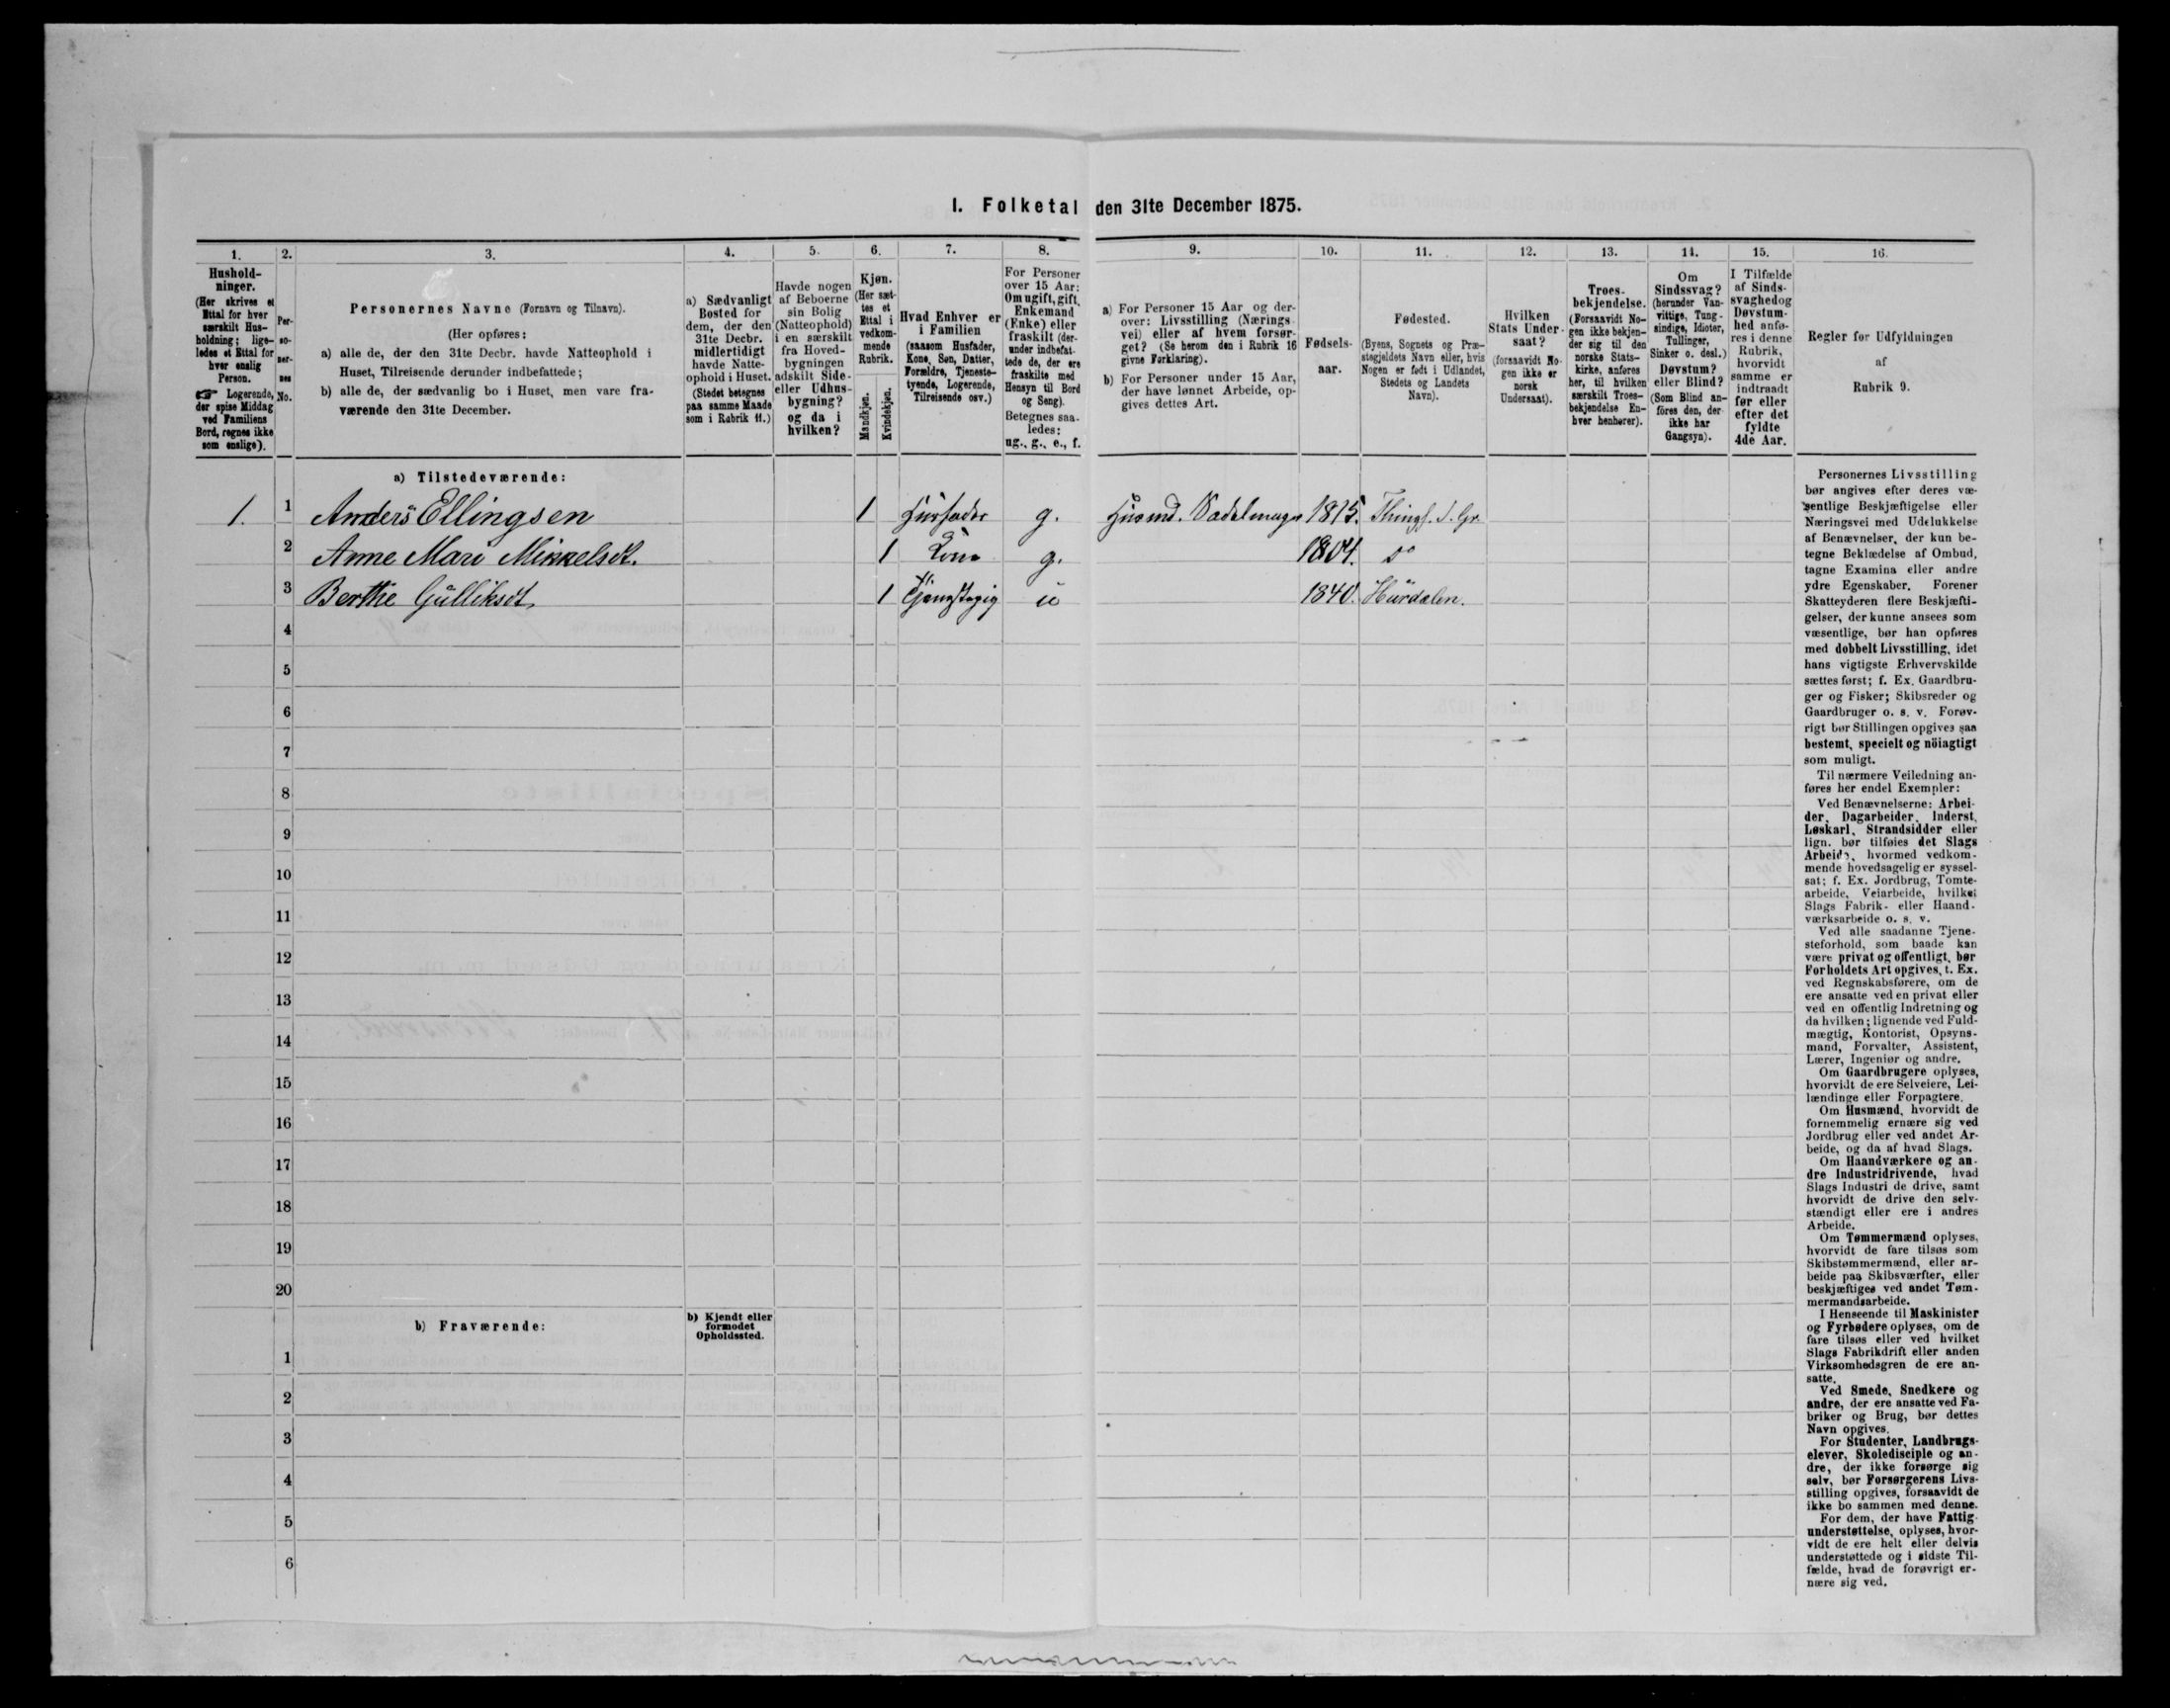 I. Folketal den 31te December 1875.
1. 2. 3. 4. 5. 6. 7. 8. 9. 10. 11. 12. 13. 14. 15. 16.
Hushold-
ninger.
(Her skrives et
Ettal for hver
særskilt Hus-
holdning; lige-
ledes et Ettal for
hver enslig
Person.
☞ Logerende,
der spise Middag
ved Familiens
Bord, regnes ikke
som enslige).
Per-
so-
ner-
nes
No.
Personernes Navne (Fornavn og Tilnavn).
(Her opføres:
a) alle de, der den 31te Decbr. havde Natteophold i
Huset, Tilreisende derunder indbefattede;
b) alle de, der sædvanlig bo i Huset, men vare fra-
værende den 31te December.
a) Sædvanligt
Bosted for
dem, der den
31te Decbr.
midlertidigt
havde Natte-
ophold i Huset.
(Stedet betegnes
paa samme Maade
som i Rubrik 11.)
Havde nogen
af Beboerne
sin Bolig
(Natteophold)
i en særskilt
fra Hoved-
bygningen
adskilt Side-
eller Udhus-
bygning?
og da i
hvilken?
Kjøn.
(Her sæt-
tes et
Ettal i
vedkom-
mende
Rubrik.
Mandkjøn.
Kvindekjøn.
Hvad Enhver er
i Familien
(saasom Husfader,
Kone, Søn, Datter,
Forældre, Tjeneste-
tyende, Logerende,
Tilreisende osv.)
For Personer
over 15 Aar:
Om ugift, gift,
Enkemand
(Enke) eller
fraskilt (der-
under indbefat-
tede de, der ere
fraskilte med
Hensyn til Bord
og Seng).
Betegnes saa-
ledes:
ug., g., e., f.
a) For Personer 15 Aar og der-
over: Livsstilling (Nærings-
vei) eller af hvem forsør-
get? (Se herom den i Rubrik 16
givne Forklaring).
b) For Personer under 15 Aar,
der have lønnet Arbeide, op-
gives dettes Art.
Fødsels-
aar.
Fødested.
(Byens, Sognets og Præ-
stegjeldets Navn eller, hvis
Nogen er født i Udlandet,
Stedets og Landets
Navn).
Hvilken
Stats Under-
saat?
(forsaavidt No-
gen ikke er
norsk
Undersaat).
Troes-
bekjendelse.
(Forsaavidt No-
gen ikke bekjen-
der sig til den
norske Stats-
kirke, anføres
her, til hvilken
særskilt Troes-
bekjendelse En-
hver henhører).
Om
Sindssvag?
(herunder Van-
vittige, Tung-
sindige, Idioter,
Tullinger,
Sinker o. desl.)
Døvstum?
eller Blind?
(Som Blind an-
föres den, der
ikke har
Gangsyn).
I Tilfælde
af Sinds-
svaghed og
Døvstum-
hed anfø-
res i denne
Rubrik,
hvorvidt
samme er
indtraadt
før eller
efter det
fyldte
4de Aar.
Regler før Udfyldningen
af
Rubrik 9.
a) Tilstedeværende:
1. 1 Anders Ellingsen 1 Husfader g. Husmd. Sadelmager 1815. Things. S. Gr.
2 Anne Mari Mikkelsdt. 1 Kone g. 1804. do
3 Berthe Gulliksdt. 1 u 1840. Hurdalen.
4
5
6
7
8
9
10
11
12
13
14
15
16
17
18
19
20
b) Fraværende:
b) Kjendt eller
formodet
Opholdssted.
1
2
3
4
5
6
Personernes Livsstilling
bør angives efter deres væ-
sentlige Beskjæftigelse eller
Næringsvei med Udelukkelse
af Benævnelser, der kun be-
tegne Beklædelse af Ombud,
tagne Examina eller andre
ydre Egenskaber. Forener
Skatteyderen flere Beskjæfti-
gelser, der kunne ansees som
væsentlige, bør han opføres
med dobbelt Livsstilling, idet
hans vigtigste Erhvervskilde
sættes først; f. Ex. Gaardbru-
ger og Fisker; Skibsreder og
Gaardbruger o. s. v. Forøv-
rigt bør Stillingen opgives saa
bestemt, specielt og nöiagtigt
som muligt.
Til nærmere Veiledning an-
føres her endel Exempler:
Ved Benævnelserne: Arbei-
der, Dagarbeider, Inderst,
Løskarl, Strandsidder eller
lign. bør tilføies det Slags
Arbeide, hvormed vedkom-
mende hovedsagelig er syssel-
sat; f. Ex. Jordbrug, Tomte-
arbeide, Veiarbeide, hvilket
Slags Fabrik- eller Haand-
værksarbeide o. s. v.
Ved alle saadanne Tjene-
steforhold, som baade kan
være privat og offentligt, bør
Forholdets Art opgives, t. Ex.
ved Regnskabsførere, om de
ere ansatte ved en privat eller
ved en offentlig Indretning og
da hvilken; lignende ved Fuld-
mægtig, Kontorist, Opsyns-
mand, Forvalter, Assistent,
Lærer, Ingeniør og andre.
Om Gaardbrugere oplyses,
hvorvidt de ere Selveiere, Lei-
lændinge eller Forpagtere.
Om Husmænd, hvorvidt de
fornemmelig ernære sig ved
Jordbrug eller ved andet Ar-
beide, og da af hvad Slags.
Om Haandværkere og an-
dre Industridrivende, hvad
Slags Industri de drive, samt
hvorvidt de drive den selv-
stændigt eller ere i andres
Arbeide.
Om Tømmermænd oplyses,
hvorvidt de fare tilsøs som
Skibstømmermænd, eller ar-
beide paa Skibsværfter, eller
beskjæftiges ved andet Tøm-
mermandsarbeide.
I Henseende til Maskinister
og Fyrbødere oplyses, om de
fare tilsøs eller ved hvilket
Slags Fabrikdrift eller anden
Virksomhedsgren de ere an-
satte.
Ved Smede, Snedkere og
andre, der ere ansatte ved Fa-
briker og Brug, bør dettes
Navn opgives.
For Studenter, Landbrugs-
elever, Skoledisciple og an-
dre, der ikke forsørge sig
selv, bør Forsørgerens Livs-
stilling opgives, forsaavidt de
ikke bo sammen med denne.
For dem, der have Fattig-
understøttelse, oplyses, hvor-
vidt de ere helt eller delvis
understøttede og i sidste Til-
fælde, hvad de forøvrigt er-
nære sig ved.